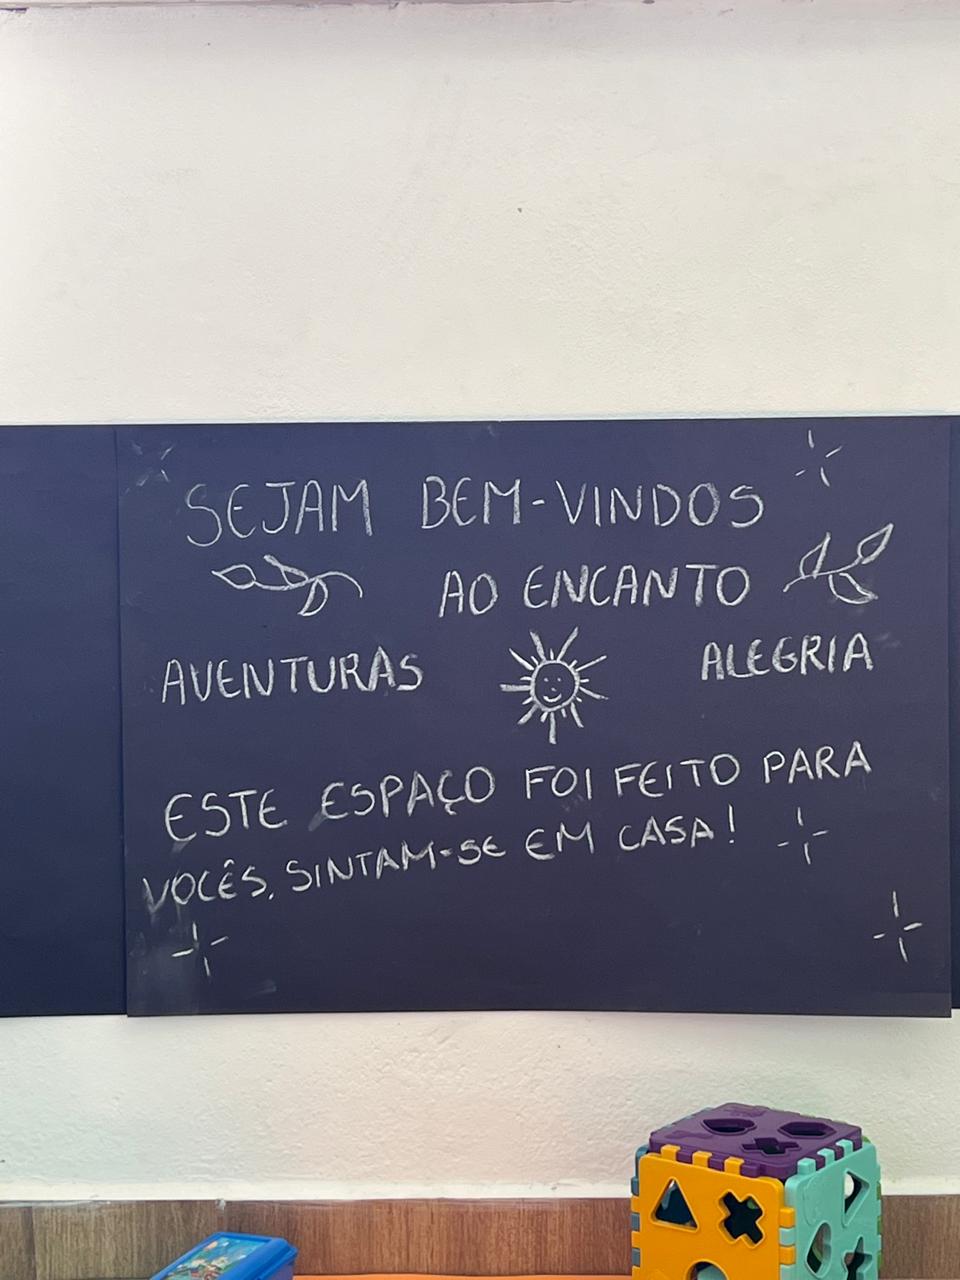 SEJAM BEM-VINDOS
AO ENCANTO
AVENTURAS ALEGRIA
ESTE ESPAÇO FOI FEITO PARA
VOCÊS, SINTAM-SE EM CASA!